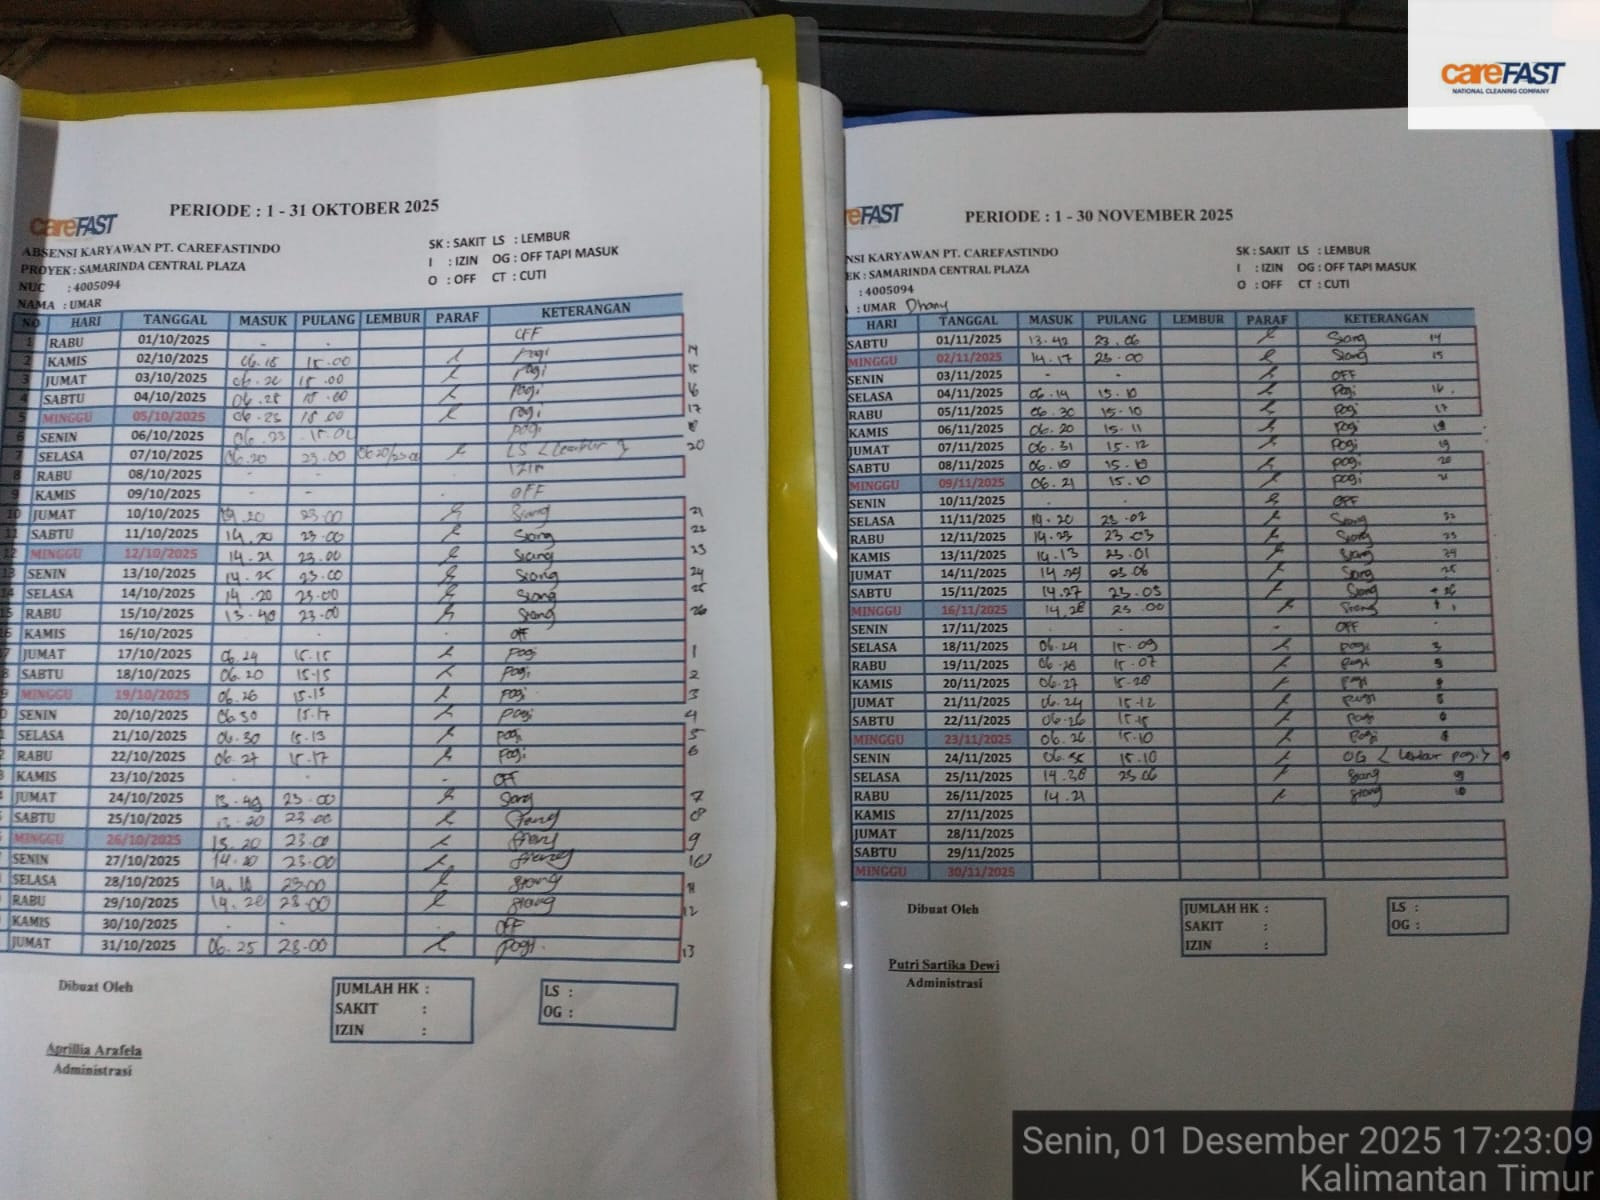 careFAST
NATIONAL CLEANING COMPANY
careFAST
PERIODE : 1 - 31 OKTOBER 2025
ABSENSI KARYAWAN PT. CAREFASTINDO
PROYEK : SAMARINDA CENTRAL PLAZA
NUC : 4005094
NAMA : UMAR
SK : SAKIT LS : LEMBUR
I : IZIN OG : OFF TAPI MASUK
O : OFF CT : CUTI
NO HARI TANGGAL MASUK PULANG LEMBUR PARAF KETERANGAN
1 RABU 01/10/2025 - - OFF
2 KAMIS 02/10/2025 06.18 15.00 Pagi 14
3 JUMAT 03/10/2025 15.00 Pagi 15
4 SABTU 04/10/2025 06.25 15.00 Pagi 16
5 MINGGU 05/10/2025 06.25 15.00 Pagi 17
6 SENIN 06/10/2025 06.23 Pagi
7 SELASA 07/10/2025 06.20 23.00 06.20/23.00 LS (Lembur) 20
8 RABU 08/10/2025 - - Izin
9 KAMIS 09/10/2025 - - OFF
10 JUMAT 10/10/2025 14.20 23.00 Siang 21
11 SABTU 11/10/2025 14.20 23.00 Siang 22
12 MINGGU 12/10/2025 14.21 23.00 Siang 23
13 SENIN 13/10/2025 14.25 23.00 Siang 24
14 SELASA 14/10/2025 14.20 23.00 Siang 25
15 RABU 15/10/2025 13.40 23.00 Siang 26
16 KAMIS 16/10/2025 . . off
JUMAT 17/10/2025 06.24 15.15 Pagi 1
SABTU 18/10/2025 06.20 15.15 Pagi 2
MINGGU 19/10/2025 06.26 15.15 Pagi 3
SENIN 20/10/2025 06.30 15.17 Pagi 4
SELASA 21/10/2025 06.30 15.13 Pagi 5
RABU 22/10/2025 06.27 15.17 Pagi 6
KAMIS 23/10/2025 . . OFF
JUMAT 24/10/2025 13.49 23.00 Siang 7
SABTU 25/10/2025 13.20 23.00 Siang 8
MINGGU 26/10/2025 13.20 23.00 Siang 9
SENIN 27/10/2025 14.20 23.00 Siang 10
SELASA 28/10/2025 14.18 23.00 Siang 11
RABU 29/10/2025 14.28 23.00 Siang 12
KAMIS 30/10/2025 - - OFF
JUMAT 31/10/2025 06.25 23.00 Pagi 13
Dibuat Oleh
Aprillia Arafela
Administrasi
JUMLAH HK :
SAKIT :
IZIN :
LS :
OG :
reFAST
PERIODE : 1 - 30 NOVEMBER 2025
NSI KARYAWAN PT. CAREFASTINDO
EK : SAMARINDA CENTRAL PLAZA
: 4005094
: UMAR Dhany
SK : SAKIT LS : LEMBUR
I : IZIN OG : OFF TAPI MASUK
O : OFF CT : CUTI
HARI TANGGAL MASUK PULANG LEMBUR PARAF KETERANGAN
SABTU 01/11/2025 13.42 23.06 Siang 14
MINGGU 02/11/2025 14.17 23.00 Siang 15
SENIN 03/11/2025 - - OFF
SELASA 04/11/2025 06.19 15.10 Pagi 16
RABU 05/11/2025 06.30 15.10 Pagi 17
KAMIS 06/11/2025 06.20 15.11 Pagi 18
JUMAT 07/11/2025 06.31 15.12 Pagi 19
SABTU 08/11/2025 06.18 15.10 Pagi 20
MINGGU 09/11/2025 06.21 15.10 Pagi 21
SENIN 10/11/2025 . . OFF
SELASA 11/11/2025 14.20 23.02 Siang 22
RABU 12/11/2025 14.23 23.03 Siang 23
KAMIS 13/11/2025 14.13 23.01 Siang 24
JUMAT 14/11/2025 14.29 23.06 Siang 25
SABTU 15/11/2025 14.27 23.05 Siang 26
MINGGU 16/11/2025 14.28 23.00 Siang 1
SENIN 17/11/2025 . . OFF
SELASA 18/11/2025 06.24 15.09 Pagi
RABU 19/11/2025 06.28 15.07 Pagi
KAMIS 20/11/2025 06.27 15.28 Pagi
JUMAT 21/11/2025 06.24 15.12 Pagi
SABTU 22/11/2025 06.26 15.15 Pagi
MINGGU 23/11/2025 06.26 15.10 Pagi
SENIN 24/11/2025 15.10 OG (Lembur pagi)
SELASA 25/11/2025 14.38 23.06 Siang 9
RABU 26/11/2025 14.21 Siang 10
KAMIS 27/11/2025
JUMAT 28/11/2025
SABTU 29/11/2025
MINGGU 30/11/2025
Dibuat Oleh
Putri Sartika Dewi
Administrasi
JUMLAH HK :
SAKIT :
IZIN :
LS :
OG :
Senin, 01 Desember 2025 17:23:09
Kalimantan Timur